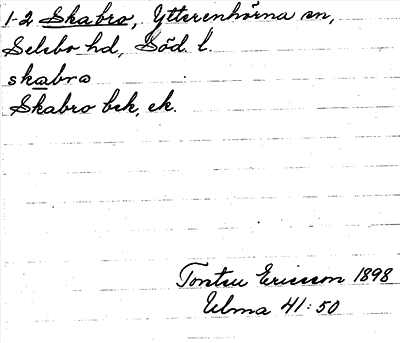 1-2 Skabro, Ytterenhörna sn,
Selebo hd, Söd. l.
skabro
Skabro bek, ek.
Ericsson 1898
Ulma 41:50